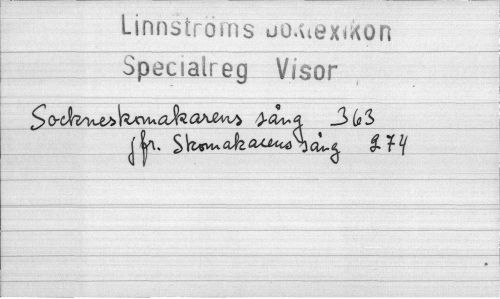 Linnströms Boklexikon
Specialreg Visor
Sockneskomakarens sång 363
jfr. Skomakarens sång 274